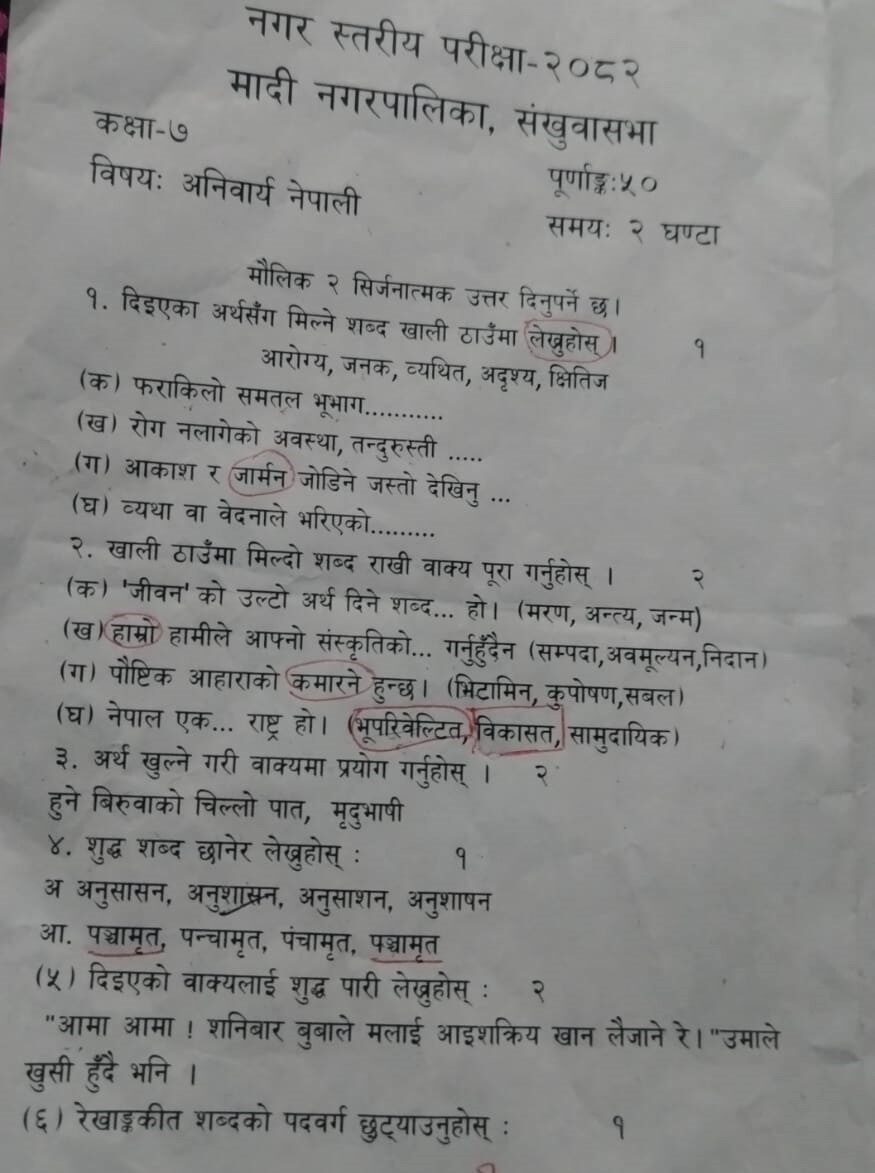 नगर स्तरीय परीक्षा-२०८२
मादी नगरपालिका, संखुवासभा
कक्षा-७
विषयः अनिवार्य नेपाली
पूर्णाङ्कः५०
समयः २ घण्टा
मौलिक २ सिर्जनात्मक उत्तर दिनुपर्ने छ।
१. दिइएका अर्थसँग मिल्ने शब्द खाली ठाउँमा लेख्नुहोस् । १
आरोग्य, जनक, व्यथित, अदृश्य, क्षितिज
(क) फराकिलो समतल भूभाग...........
(ख) रोग नलागेको अवस्था, तन्दुरुस्ती .....
(ग) आकाश र जार्मन जोडिने जस्तो देखिनु ...
(घ) व्यथा वा वेदनाले भरिएको.........
२. खाली ठाउँमा मिल्दो शब्द राखी वाक्य पूरा गर्नुहोस् । २
(क) 'जीवन' को उल्टो अर्थ दिने शब्द... हो। (मरण, अन्त्य, जन्म)
(ख) हाम्रो हामीले आफ्नो संस्कृतिको... गर्नुहुँदैन (सम्पदा,अवमूल्यन,निदान)
(ग) पौष्टिक आहाराको कमारने हुन्छ। (भिटामिन, कुपोषण,सबल)
(घ) नेपाल एक... राष्ट्र हो। (भूपरिवेल्टित, विकासत, सामुदायिक)
३. अर्थ खुल्ने गरी वाक्यमा प्रयोग गर्नुहोस् । २
हुने बिरुवाको चिल्लो पात, मृदुभाषी
४. शुद्ध शब्द छानेर लेख्नुहोस् : १
अ अनुसासन, अनुशासन, अनुसाशन, अनुशाषन
आ. पञ्चामृत, पन्चामृत, पंचामृत, पञ्चामृत
(५) दिइएको वाक्यलाई शुद्ध पारी लेख्नुहोस् : २
"आमा आमा ! शनिबार बुबाले मलाई आइशक्रिय खान लैजाने रे। "उमाले
खुसी हुँदै भनि ।
(६) रेखाङ्ककीत शब्दको पदवर्ग छुट्याउनुहोस् : १